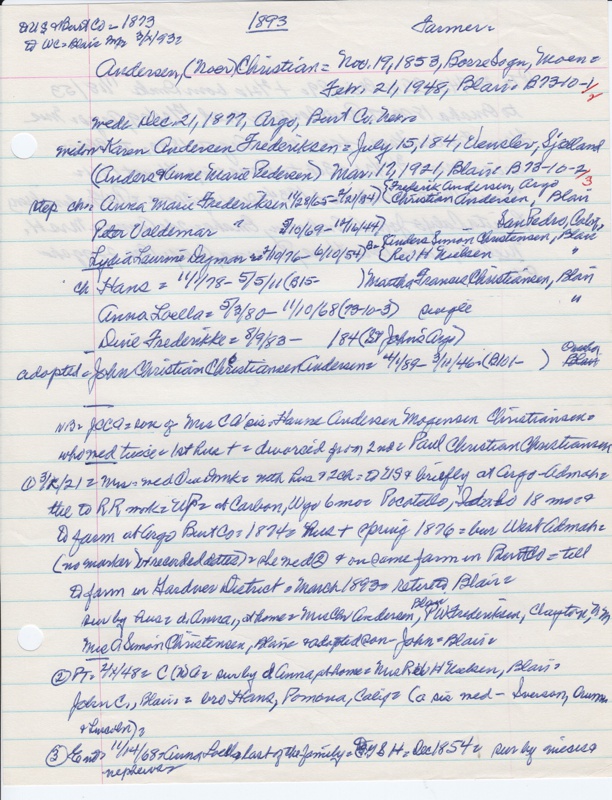 → US & Burt Co = 1873 1893 Farmer =
→ WC = Blair Mp 3/X/93 =
Andersen, (Noer) Christian = Nov. 19, 1853, Borre Sogn, Moen =
Feb. 21, 1948, Blair = B73-10-1/2
med = Dec. 21, 1877, Argo, Burt Co. Nebr =
widow Karen Andersen Frederiksen = July 15, 184, Sjelland
(Anders & Anne Marie Pedersen) Mar. 17, 1921, Blair = B73-10-2
3
step ch = Anna Marie Frederiksen (Frederik Andersen, Argo
Christian Andersen, Blair
Peter Valdemar " 5/10/69 - 12/16/44) San Pedro, Calif,
Lydia Laurine Dagmar = 2/10/76 - 6/10/54) Anders Simon Christensen, Blair
(Rev H Nielsen "
ch Hans = 11/1/78 - 5/5/11 (B15- ) Martha Frances Christiansen, Blair
Anna Loella = 5/3/80 - 11/10/68 (73-10-3) single "
Dine Frederikke = 8/9/83 - 184 (St John's Argo)
adopted = John Christian Christiansen Andersen = 4/1/89 - 3/11/46 = (B101- ) Omaha
Blair
NB = JCCA = son of Mrs CA' sis = Hanne Andersen Mogensen Christiansen =
who med twice = 1st hus + = divorced from 2nd = Paul Christian Christiansen
① = Mrs = med Dmk = with hus & 2 ch = → US & briefly at Argo =
to RR work = UP = at Carbon, Wyo 6 mo = Pocatello, Idaho 18 mo =
→ farm at Argo Burt Co = 1874 = hus + spring 1876 = bur West
(no marker or recorded dates) = she med ② & on same farm in Burt Co = till
→ farm in Gardner District = March 1893 = retired Blair =
sur by hus = d. Anna, at home = Mrs Chr Andersen, Blair, PW Frederiksen, Clayton, N M
Mrs A Simon Christensen, Blair & adopted son = John = Blair =
② PT = 48 = C (N) A = sur by d Anna, at home = Mrs Rev H Nielsen, Blair =
John C., Blair, = bro Hans, Pomona, Calif = (a sis med - Iverson,
& Lincoln) =
③ Ent = 11/14/68 = Anna Loella last of the family = GSH = Dec 1854 = sur by nieces &
nephews